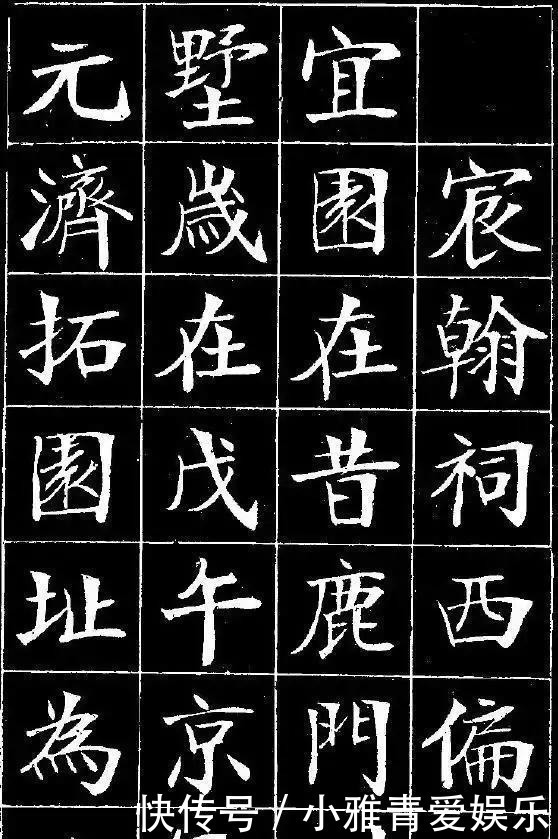 宸翰祠西偏
宜園在昔鹿門
墅歲在戊午京
元濟拓園址為
快传号/小雅青爱娱乐